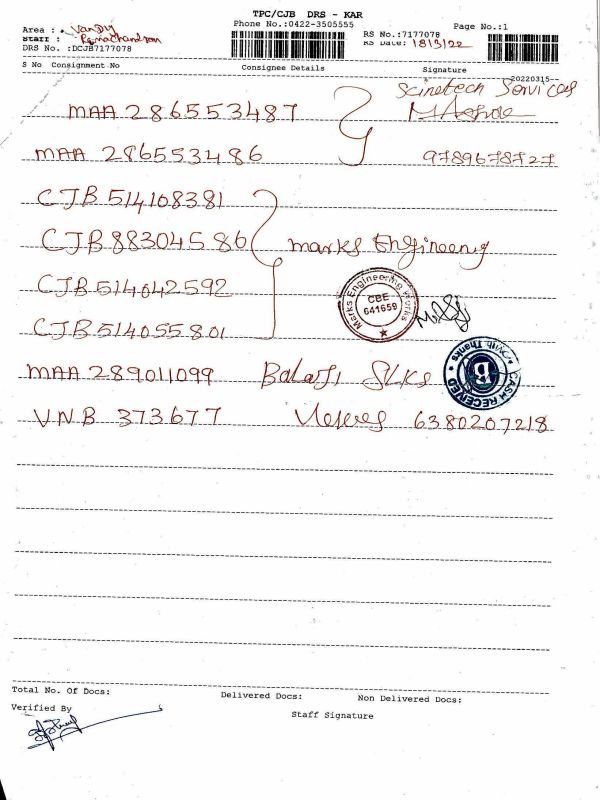 TPC/CJB DRS - KAR
Phone No.:0422-3505555
Page No.:1
Area :
Staff : Ramachandran
DRS No. :DCJB7177078
RS No.:7177078
RS Date: 18/3/22
S No Consignment No Consignee Details Signature
--20220315--
MAA 286553487 Services
MAA 286553486 9789678727
CJB 514108381
CJB 88304586 marks Engineering
CJB 514042592
Marks Engineering Works
CBE
641659
CJB 514055801
MAA 289011099 Balaji SLKS
With Thanks
CASH RECEIVED
VNB 373677 6380207218
Total No. Of Docs: Delivered Docs: Non Delivered Docs:
Verified By
Staff Signature